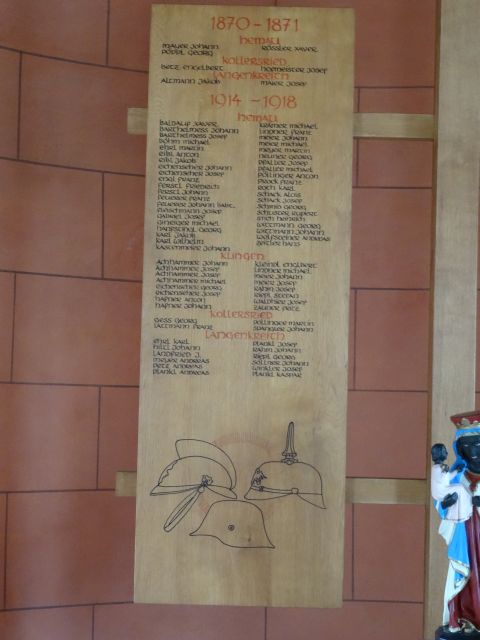 1870 - 1871
Hemau
Mauer Johann Rössler Xaver
Pöppl Georg
Kollersried
Betz Engelbert Hofmeister Josef
Langenkreith
Altmann Jakob Maier Josef
1914 - 1918
Hemau
Baldauf Xaver Krämer Michael
Barthelmess Johann Lindner Franz
Barthelmess Josef Meier Johann
Böhm Michael Meier Michael
Ehrl Martin Meyer Martin
Eibl Anton Neuner Georg
Eibl Jakob Pfaller Josef
Eichenseher Johann Pfaller Michael
Eichenseher Josef Pollinger Anton
Engl Franz Prock Franz
Ferstl Friedrich Roth Karl
Ferstl Johann Schack Alois
Feuerer Franz Schack Josef
Feuerer Johann Bapt. Schmid Georg
Fleischmann Josef Schuster Rupert
Gabriel Josef Sich Heinrich
Gineiger Michael Wittmann Georg
Hanfstingl Georg Wittmann Johann
Karl Jakob Wolfsteiner Andreas
Karl Wilhelm Zeitler Hans
Kastenmeier Johann
Klingen
Achhammer Johann Kleindl Englbert
Achhammer Josef Lindner Michael
Achhammer Josef Meier Johann
Achhammer Michael Meier Josef
Eichenseher Georg Rahm Josef
Eichenseher Josef Riepl Stefan
Hafner Anton Waldhier Josef
Hafner Johann Zauner Peter
Kollersried
Gess Georg Pollinger Martin
Lattmann Franz Spangler Johann
Langenkreith
Ehrl Karl Plankl Josef
Hiltl Johann Rahm Johann
Landfried J. Riepl Georg
Meyer Andreas Söllner Johann
Petz Andreas Winkler Josef
Plankl Andreas Plankl Kaspar